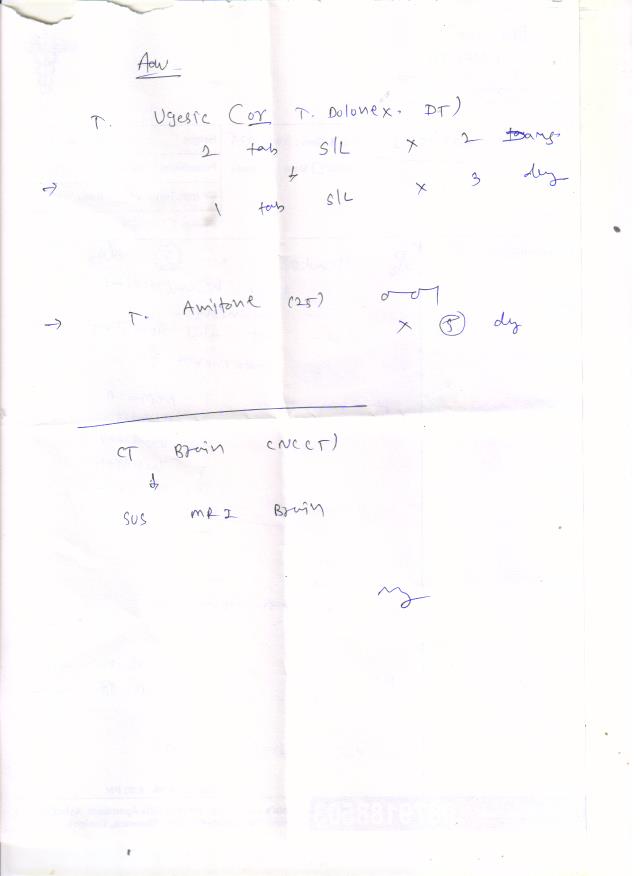 Adv
T. Ugesic (or T. Dolonex. DT)
2 tab S/L x 2 Days
↓
→ 1 tab S/L x 3 day
→ T. Amitone (25) 0—0—1
x 5 dy
CT Brain (NCCT)
↓
SOS MRI Brain